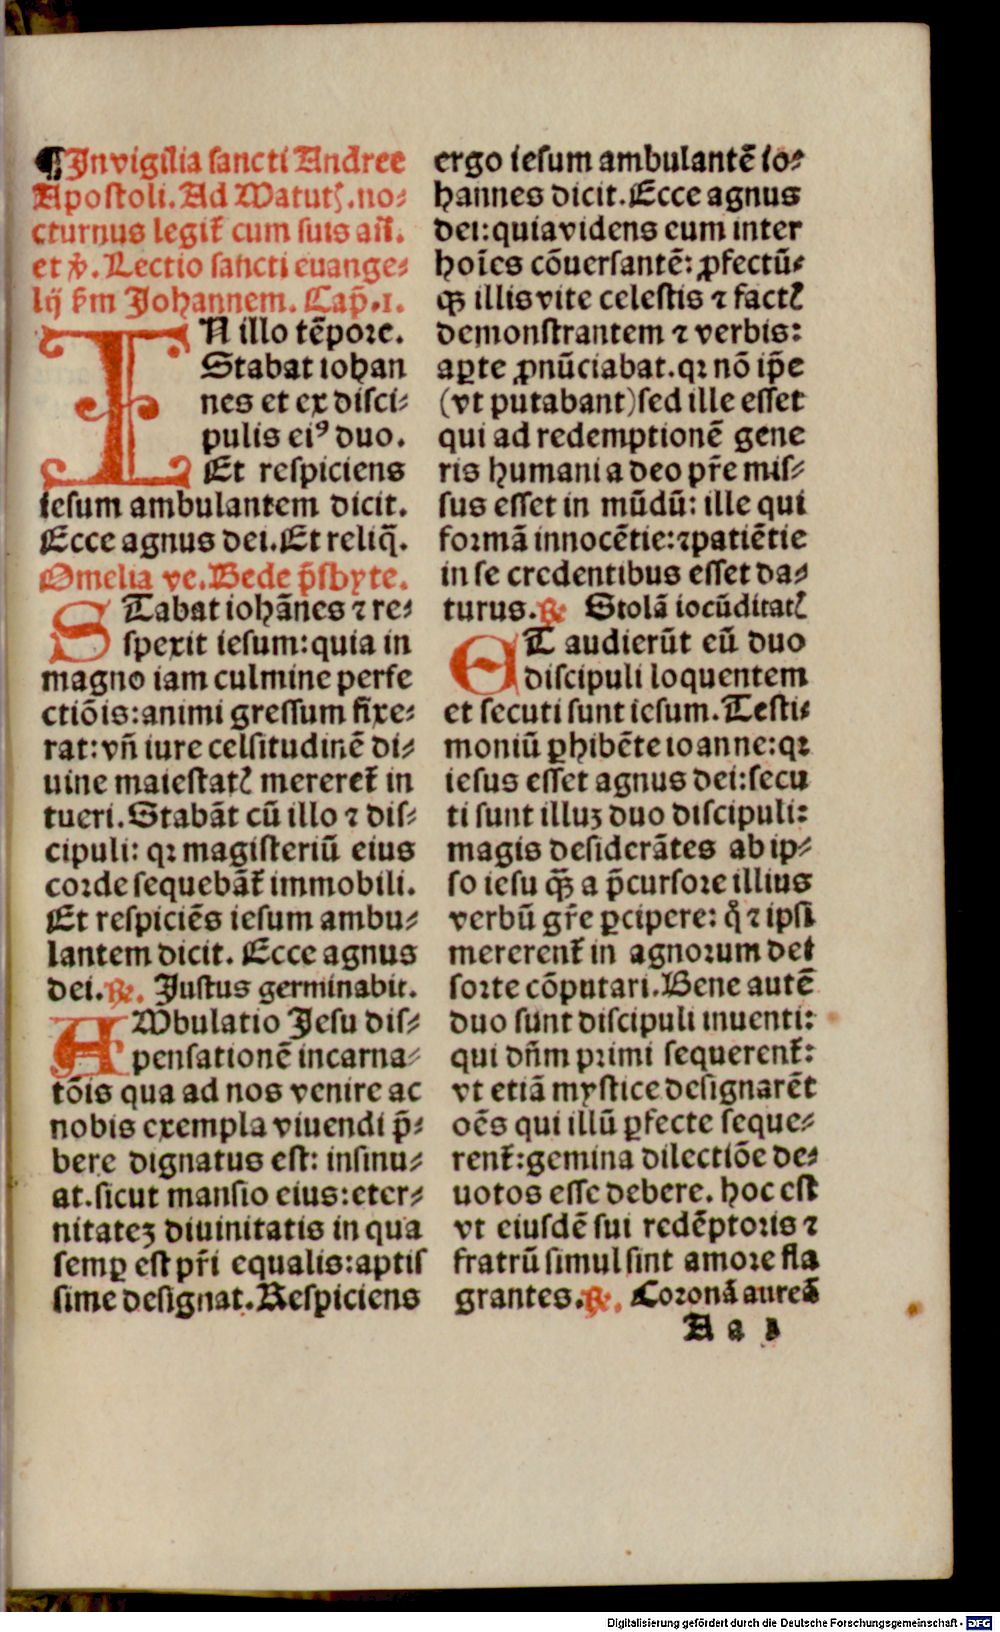 ¶ In vigilia sancti Andree
Apostoli. Ad Matutꝭ. no⸗
cturnus legit᷑ cum suis an̄.
et ꝟ. Lectio sancti euange⸗
lij ẜm Johannem. Cap̄. 1.
IN illo tēpore.
Stabat iohan
nes et ex disci⸗
pulis eiꝰ duo.
Et respiciens
iesum ambulantem dicit.
Ecce agnus dei. Et reliq̄.
Omelia ve. Bede p̄sbyte.
STabat iohānes ⁊ re⸗
spexit iesum: quia in
magno iam culmine perfe
ctiōis: animi gressum fixe⸗
rat: vn̄ iure celsitudinē di⸗
uine maiestatꝭ mereret᷑ in
tueri. Stabāt cū illo ⁊ dis⸗
cipuli: qꝛ magisteriū eius
corde sequebāt᷑ immobili.
Et respiciēs iesum ambu⸗
lantem dicit. Ecce agnus
dei. ℟. Justus germinabit.
AMbulatio Jesu dis⸗
pensationē incarna⸗
tōis qua ad nos venire ac
nobis exempla viuendi p̄⸗
bere dignatus est: insinu⸗
at. sicut mansio eius: eter⸗
nitatez diuinitatis in qua
semꝑ est pr̄i equalis: aptis
sime designat. Respiciens
ergo iesum ambulantē io⸗
hannes dicit. Ecce agnus
dei: quia videns eum inter
hoīes cōuersantē: ꝓfectū⸗
qꝫ illis vite celestis ⁊ factꝭ
demonstrantem ⁊ verbis:
aꝑte ꝓnūciabat. qꝛ nō ip̄e
(vt putabant) sed ille esset
qui ad redemptionē gene
ris humani a deo pr̄e mis⸗
sus esset in mūdū: ille qui
formā innocētie: ⁊ patiētie
in se credentibus esset da⸗
turus. ℟ Stolā iocūditatꝭ
ET audierūt eū duo
discipuli loquentem
et secuti sunt iesum. Testi⸗
moniū ꝑhibēte ioanne: qꝛ
iesus esset agnus dei: secu
ti sunt illuz duo discipuli:
magis desiderātes ab ip⸗
so iesu qꝫ̄ a p̄cursore illius
verbū gr̄e ꝑcipere: qͦ ⁊ ipsi
mererent᷑ in agnorum dei
sorte cōputari. Bene autē
duo sunt discipuli inuenti:
qui dn̄m primi sequerent᷑:
vt etiā mystice designarēt
oēs qui illū ꝑfecte seque⸗
rent᷑: gemina dilectiōe de⸗
uotos esse debere. hoc est
vt eiusdē sui redēptoris ⁊
fratrū simul sint amore fla
grantes. ℟. Coronā aureā
A a 1
Digitalisierung gefördert durch die Deutsche Forschungsgemeinschaft - DFG